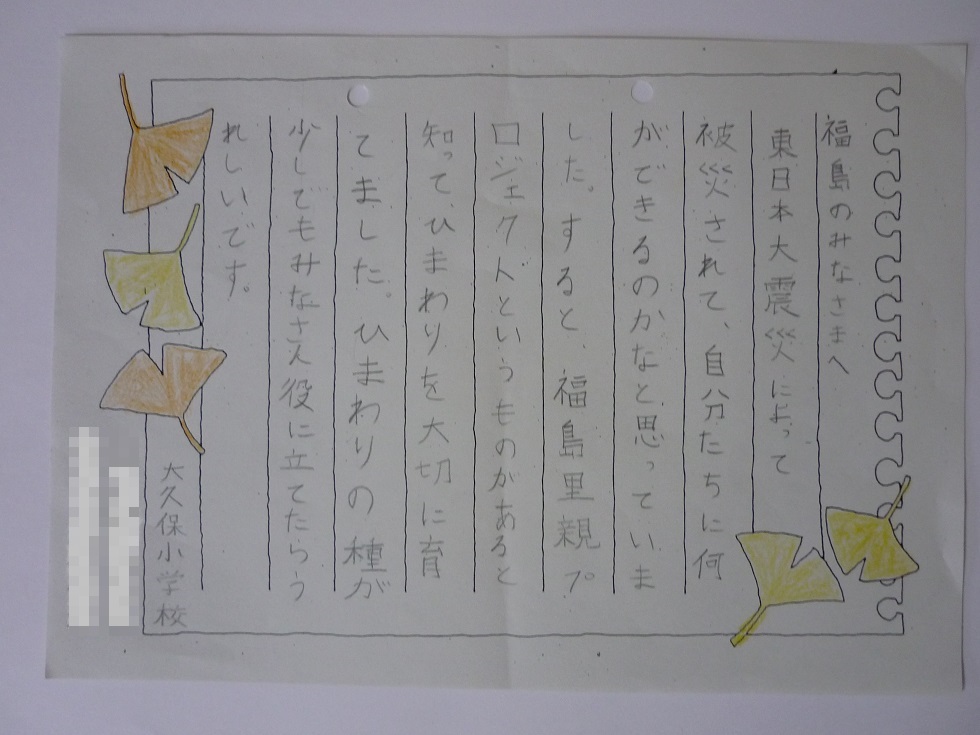 福島のみなさまへ
東日本大震災によって
被災されて、自分たちに何
ができるのかなと思っていま
した。すると、福島里親プ
ロジェクトというものがあると
知って、ひまわりを大切に育
てました。ひまわりの種が
少しでもみなさん役に立てたらう
れしいです。
大久保小学校